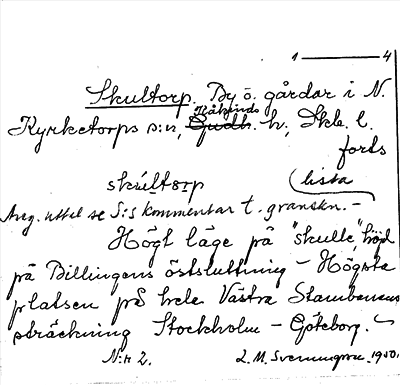 1 — 4
Skultorp. By o. gårdar i N.
Kåkinds
Kyrketorps s:n, Gudh. h., Skbs. l.
forts
skúltorp (lista
Ang. uttal se S:s kommentar t. granskn. –
Högt läge på "skulle", höjd
på Billingens östsluttning – Högsta
platsen på hela Västra Stambanans
sträckning Stockholm – Göteborg.
N:r 2. L. M. Svenungsson. 1950.